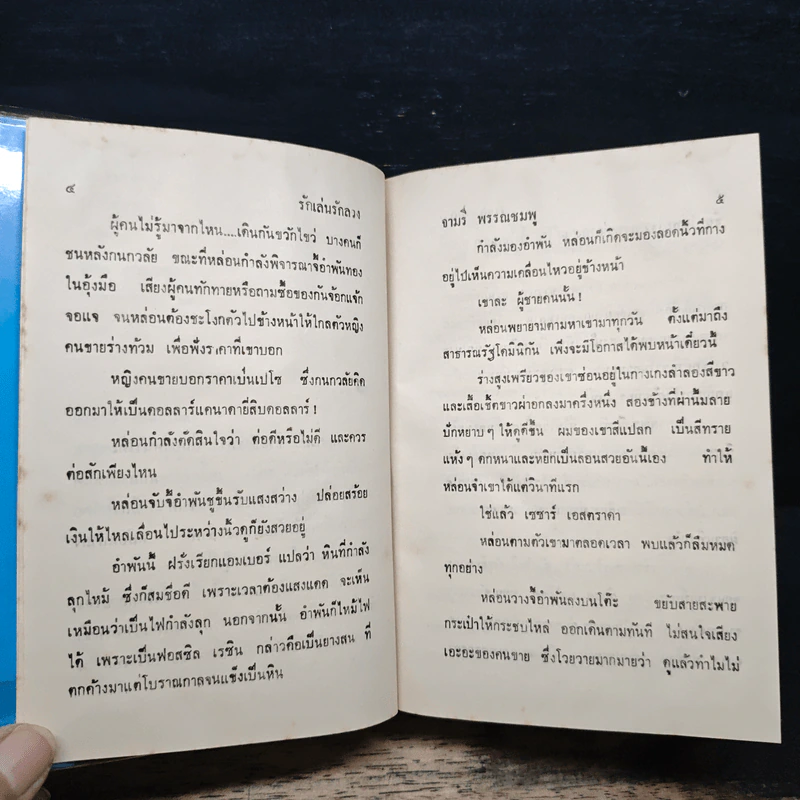 ๔
รักเล่นรักลวง
ผู้คนไม่รู้มาจากไหน....เดินกันขวักไขว่ บางคนก็
ชนหลังกนกวลัย ขณะที่หล่อนกำลังพิจารณาจี้อำพันทอง
ในอุ้งมือ เสียงผู้คนทักทายหรือถามซื้อของกันจ้อกแจ้ก
จอแจ จนหล่อนต้องชะโงกตัวไปข้างหน้าให้ใกล้ตัวหญิง
คนขายร่างท้วม เพื่อฟังราคาที่เขาบอก
หญิงคนขายบอกราคาเป็นเปโซ ซึ่งกนกวลัยคิด
ออกมาให้เป็นดอลลาร์แคนาดายี่สิบดอลลาร์!
หล่อนกำลังตัดสินใจว่า ต่อดีหรือไม่ดี และควร
ต่อสักเพียงไหน
หล่อนจับจี้อำพันชูขึ้นรับแสงสว่าง ปล่อยสร้อย
เงินให้ไหลเลื่อนไประหว่างนิ้วดูก็ยังสวยอยู่
อำพันนี้ ฝรั่งเรียกแอมเบอร์ แปลว่า หินที่กำลัง
ลุกไหม้ ซึ่งก็สมชื่อดี เพราะเวลาต้องแสงแดด จะเห็น
เหมือนว่าเป็นไฟกำลังลุก นอกจากนั้น อำพันก็ไหม้ไฟ
ได้ เพราะเป็นฟอสซิล เรซิน กล่าวคือเป็นยางสน ที่
ตกค้างมาแต่โบราณกาลจนแข็งเป็นหิน
๕
จามรี พรรณชมพู
กำลังมองอำพัน หล่อนก็เกิดจะมองลอดนิ้วที่กาง
อยู่ไปเห็นความเคลื่อนไหวอยู่ข้างหน้า
เขาละ ผู้ชายคนนั้น!
หล่อนพยายามตามหาเขามาทุกวัน ตั้งแต่มาถึง
สาธารณรัฐโดมินิกัน เพิ่งจะมีโอกาสได้พบหน้าเดี๋ยวนี้
ร่างสูงเพรียวของเขาซ่อนอยู่ในกางเกงลำลองสีขาว
และเสื้อเชิ้ตขาวผ่าอกลงมาครึ่งหนึ่ง สองข้างที่ผ่านั้นมีลาย
ปักหยาบๆ ให้ดูดีขึ้น ผมของเขาสีแปลก เป็นสีทราย
แห้งๆ ดกหนาและหยิกเป็นลอนสวยอันนี้เอง ทำให้
หล่อนจำเขาได้แต่วินาทีแรก
ใช่แล้ว เซซาร์ เอสตราดา
หล่อนตามตัวเขามาตลอดเวลา พบแล้วก็ลืมหมด
ทุกอย่าง
หล่อนวางจี้อำพันลงบนโต๊ะ ขยับสายสะพาย
กระเป๋าให้กระชบไหล่ ออกเดินตามทันที ไม่สนใจเสียง
เอะอะของคนขาย ซึ่งโวยวายมากมายว่า ดูแล้วทำไมไม่